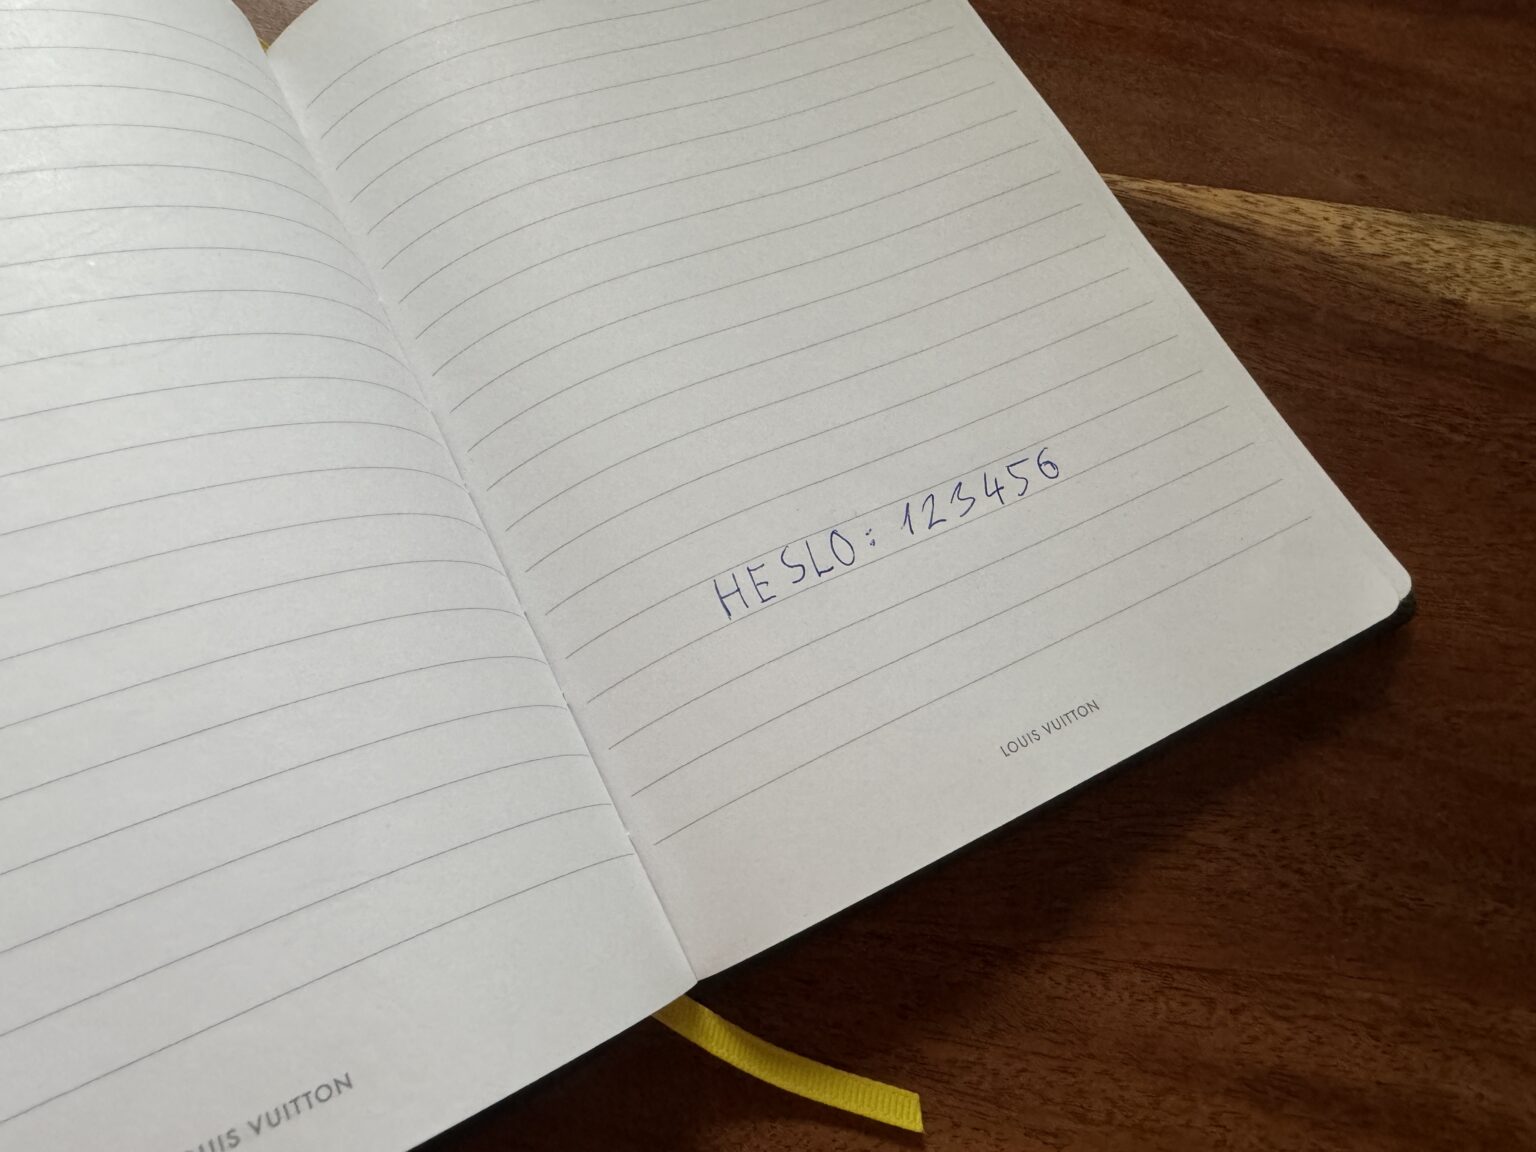 HESLO: 123456
LOUIS VUITTON
LOUIS VUITTON